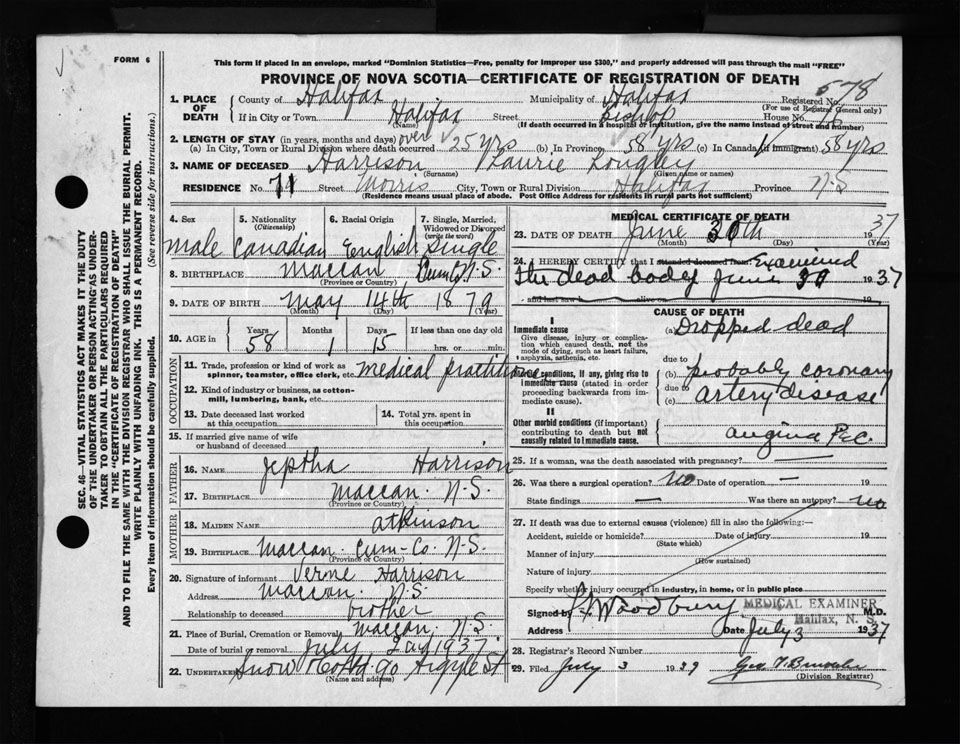 FORM 6
This form if placed in an envelope, marked "Dominion Statistics—Free, penalty for improper use $300," and properly addressed will pass through the mail "FREE"
PROVINCE OF NOVA SCOTIA—CERTIFICATE OF REGISTRATION OF DEATH
SEC. 46—VITAL STATISTICS ACT MAKES IT THE DUTY
OF THE UNDERTAKER OR PERSON ACTING AS UNDER-
TAKER TO OBTAIN ALL THE PARTICULARS REQUIRED
IN THE "CERTIFICATE OF REGISTRATION OF DEATH"
AND TO FILE THE SAME WITH THE DIVISION REGISTRAR WHO SHALL ISSUE THE BURIAL PERMIT.
WRITE PLAINLY WITH UNFADING INK. THIS IS A PERMANENT RECORD.
Every item of information should be carefully supplied. (See reverse side for instructions.)
1. PLACE OF DEATH County of Halifax Municipality of Halifax Registered No. 578
(For use of Registrar General only)
If in City or Town Halifax Street Bishop House No. 16
(Name) (If death occurred in a hospital or institution, give the name instead of street and number)
2. LENGTH OF STAY (in years, months and days)
(a) In City, Town or Rural Division where death occurred over 25 yrs (b) In Province 58 yrs (c) In Canada (if immigrant) 58 yrs
3. NAME OF DECEASED Harrison Laurie Longley
(Surname) (Given name or names)
RESIDENCE No. 71 Street Morris City, Town or Rural Division Halifax Province N.S
(Residence means usual place of abode. Post Office Address for residents in rural parts not sufficient)
4. Sex Male
5. Nationality (Citizenship) Canadian
6. Racial Origin English
7. Single, Married, Widowed or Divorced (write the word) Single
8. BIRTHPLACE Maccan Cum Co N.S.
(Province or Country)
9. DATE OF BIRTH May 14th 1879
(Month) (Day) (Year)
10. AGE in Years 58 Months 1 Days 15 If less than one day old hrs. or min.
OCCUPATION
11. Trade, profession or kind of work as spinner, teamster, office clerk, etc. Medical practitioner
12. Kind of industry or business, as cotton-mill, lumbering, bank, etc.
13. Date deceased last worked at this occupation
14. Total yrs. spent in this occupation
15. If married give name of wife or husband of deceased
FATHER
16. NAME Jeptha Harrison
17. BIRTHPLACE Maccan. N.S.
(Province or Country)
MOTHER
18. MAIDEN NAME Atkinson
19. BIRTHPLACE Maccan. Cum-Co. N.S.
(Province or Country)
20. Signature of informant Verne Harrison
Address Maccan. N.S.
Relationship to deceased brother
21. Place of Burial, Cremation or Removal Maccan. N.S.
Date of burial or removal July 2nd 1937
22. UNDERTAKER Snow & Co Ltd. 90 Argyle St
(Name and address)
MEDICAL CERTIFICATE OF DEATH
23. DATE OF DEATH June 30th 1937
(Month) (Day) (Year)
24. I HEREBY CERTIFY that I attended deceased from Examined
the dead body June 30 1937
and last saw h alive on
CAUSE OF DEATH
I
Immediate cause
Give disease, injury or complication which caused death, not the mode of dying, such as heart failure, asphyxia, asthenia, etc.
(a) Dropped dead
due to
Morbid conditions, if any, giving rise to immediate cause (stated in order proceeding backwards from immediate cause).
(b) probably coronary
due to
(c) artery disease
II
Other morbid conditions (if important) contributing to death but not causally related to immediate cause.
angina Pec.
25. If a woman, was the death associated with pregnancy? —
26. Was there a surgical operation? No Date of operation — 19
State findings — Was there an autopsy? No
27. If death was due to external causes (violence) fill in also the following:—
Accident, suicide or homicide? Date of injury 19
(State which)
Manner of injury
(How sustained)
Nature of injury
Specify whether injury occurred in industry, in home, or in public place
Signed by Woodbury M.D.
MEDICAL EXAMINER
Halifax, N. S.
Address Date July 3 1937
28. Registrar's Record Number
29. Filed July 3 1939
(Division Registrar)